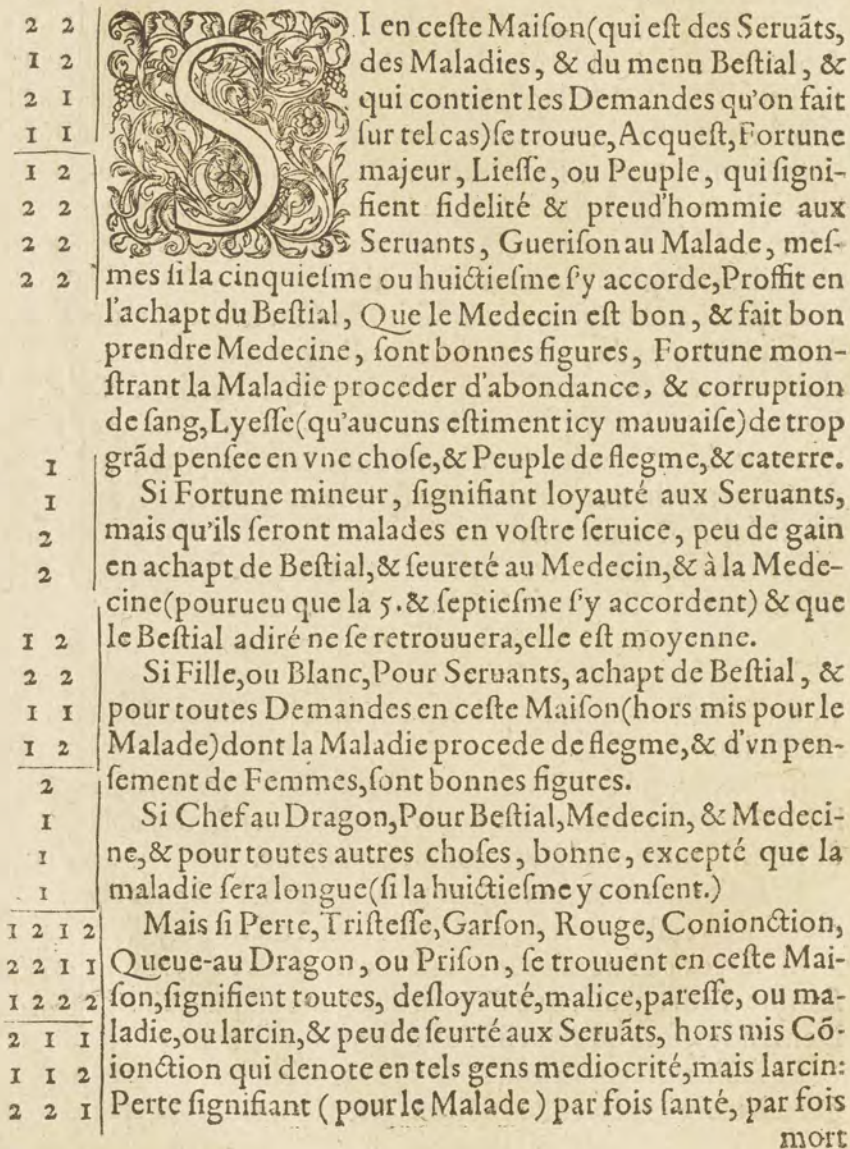 2 2 SI en ceſte Maiſon(qui eſt des Seruãts,
1 2 des Maladies, & du menu Beſtial, &
2 1 qui contient les Demandes qu'on fait
1 1 ſur tel cas)ſe trouue,Acqueſt,Fortune
1 2 majeur, Lieſſe, ou Peuple, qui ſigni-
2 2 fient fidelité & preud'hommie aux
2 2 Seruants, Gueriſon au Malade, meſ-
2 2 mes ſi la cinquieſme ou huictieſme ſ'y accorde,Proffit en
l'achapt du Beſtial, Que le Medecin eſt bon, & fait bon
prendre Medecine, ſont bonnes figures, Fortune mon-
ſtrant la Maladie proceder d'abondance, & corruption
de ſang,Lyeſſe(qu'aucuns eſtiment icy mauuaiſe)de trop
1 grãd penſee en vne choſe,& Peuple de flegme,& caterre.
1 Si Fortune mineur, ſignifiant loyauté aux Seruants,
2 mais qu'ils ſeront malades en voſtre ſeruice, peu de gain
2 en achapt de Beſtial,& ſeureté au Medecin,& à la Mede-
cine(pourueu que la 5.& ſeptieſme ſ'y accordent) & que
1 2 le Beſtial adiré ne ſe retrouuera,elle eſt moyenne.
2 2 Si Fille,ou Blanc,Pour Seruants, achapt de Beſtial, &
1 1 pour toutes Demandes en ceſte Maiſon(hors mis pour le
1 2 Malade)dont la Maladie procede de flegme,& d'vn pen-
2 ſement de Femmes,ſont bonnes figures.
1 Si Chef au Dragon,Pour Beſtial,Medecin, & Medeci-
1 ne,& pour toutes autres choſes, bonne, excepté que la
1 maladie ſera longue(ſi la huictieſme y conſent.)
1 2 1 2 Mais ſi Perte,Triſteſſe,Garſon, Rouge, Conionction,
2 2 1 1 Queue-au Dragon, ou Priſon, ſe trouuent en ceſte Mai-
1 2 2 2 ſon,ſignifient toutes, deſloyauté,malice,pareſſe, ou ma-
2 1 1 ladie,ou larcin,& peu de ſeurté aux Seruãts, hors mis Cõ-
1 1 2 ionction qui denote en tels gens mediocrité,mais larcin:
2 2 1 Perte ſignifiant (pour le Malade) par fois ſanté, par fois
mort